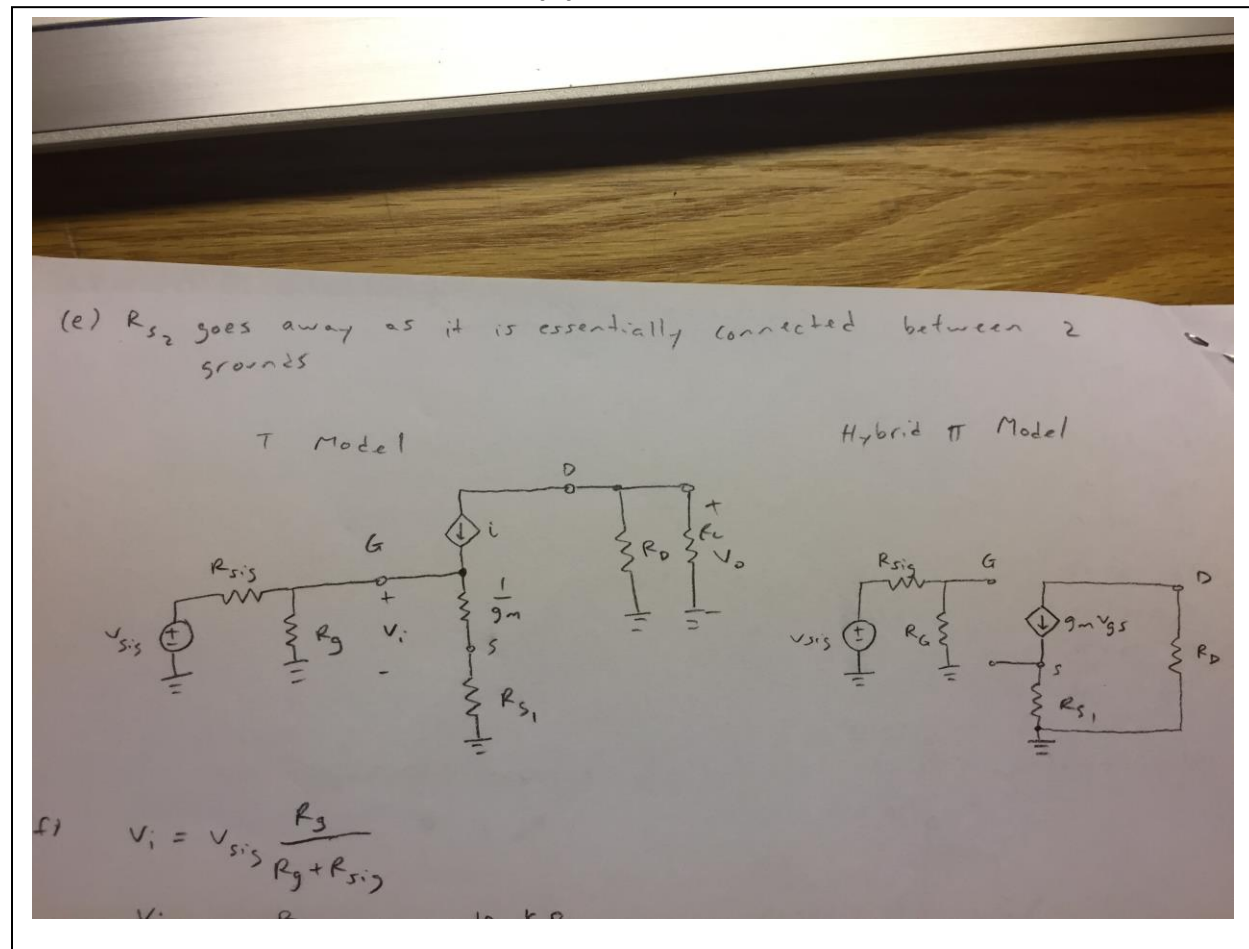 (e) R_s2 goes away as it is essentially connected between 2
grounds
T Model
Hybrid π Model
D
i
G
R_sig
+
V_i
-
1/gm
R_D
+
R_L
V_o
-
V_sig
R_g
S
R_s1
R_sig
G
D
V_sig
R_G
gm vgs
S
R_D
R_s1
f) V_i = V_sig R_g / (R_g + R_sig)